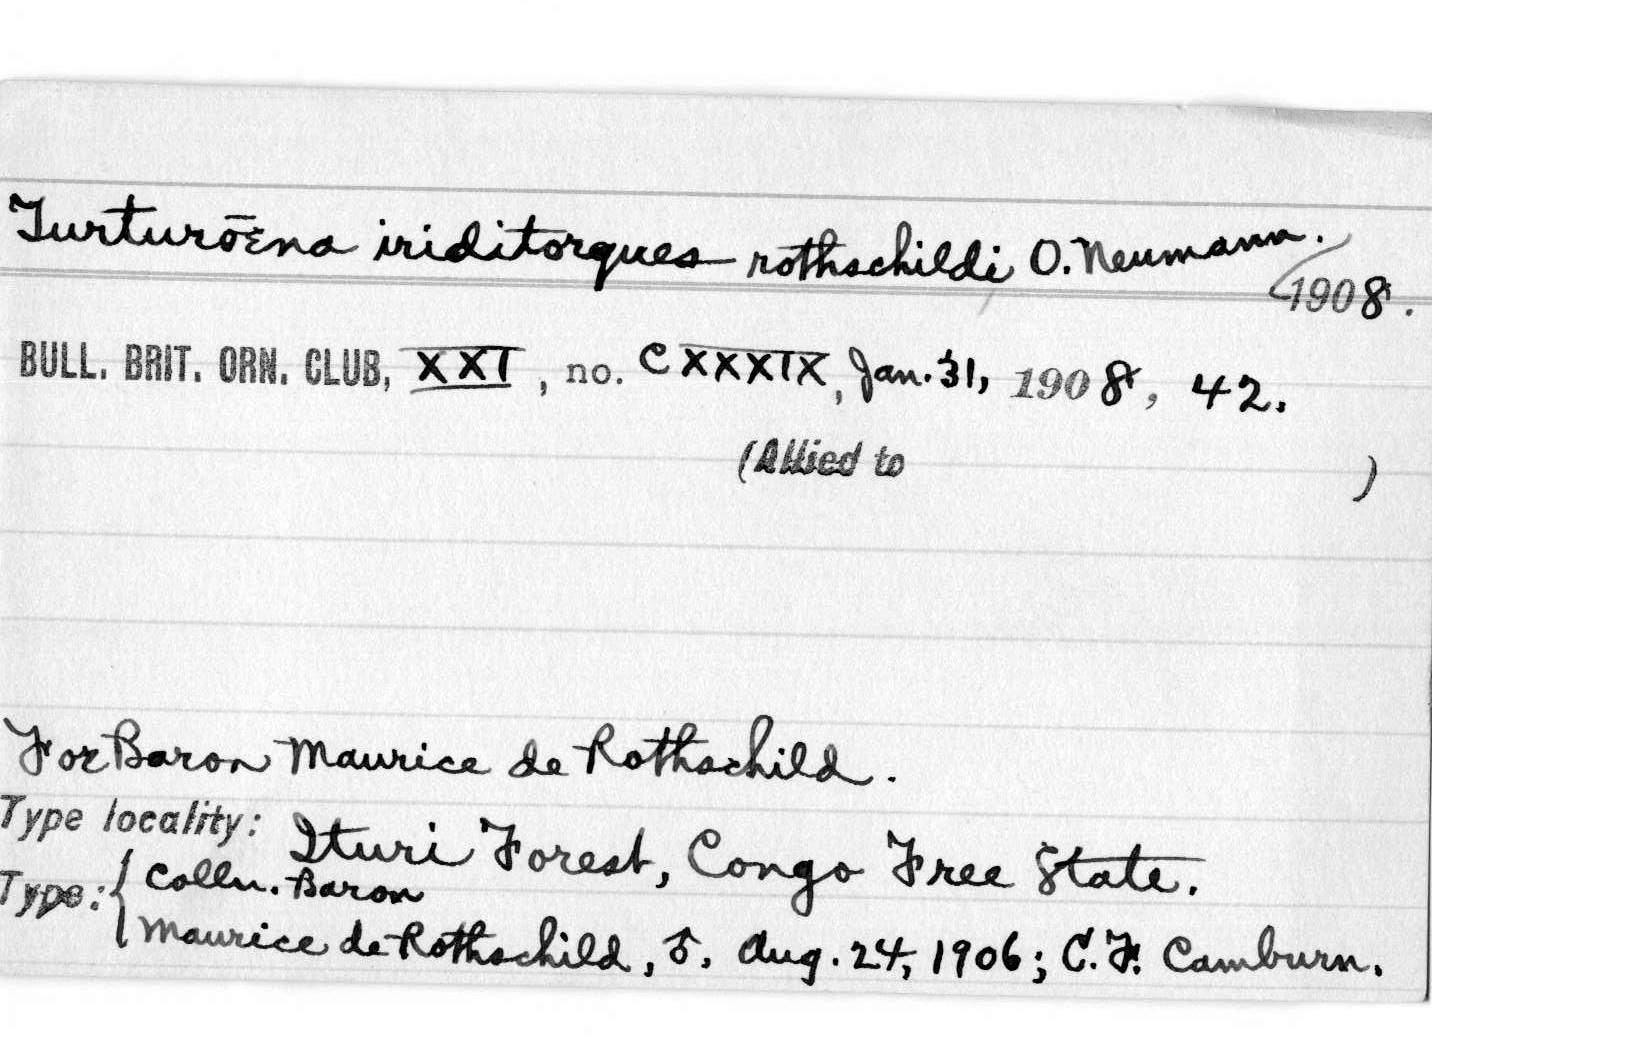 Turturōena iriditorques rothschildi O. Neumann.
1908.
BULL. BRIT. ORN. CLUB, XXI, no. CXXXIX, Jan. 31, 1908, 42.
(Allied to )
For Baron Maurice de Rothschild.
Type locality: Ituri Forest, Congo Free State.
Type: { Colln. Baron
Maurice de Rothschild, ♂. Aug. 24, 1906; C. F. Camburn.